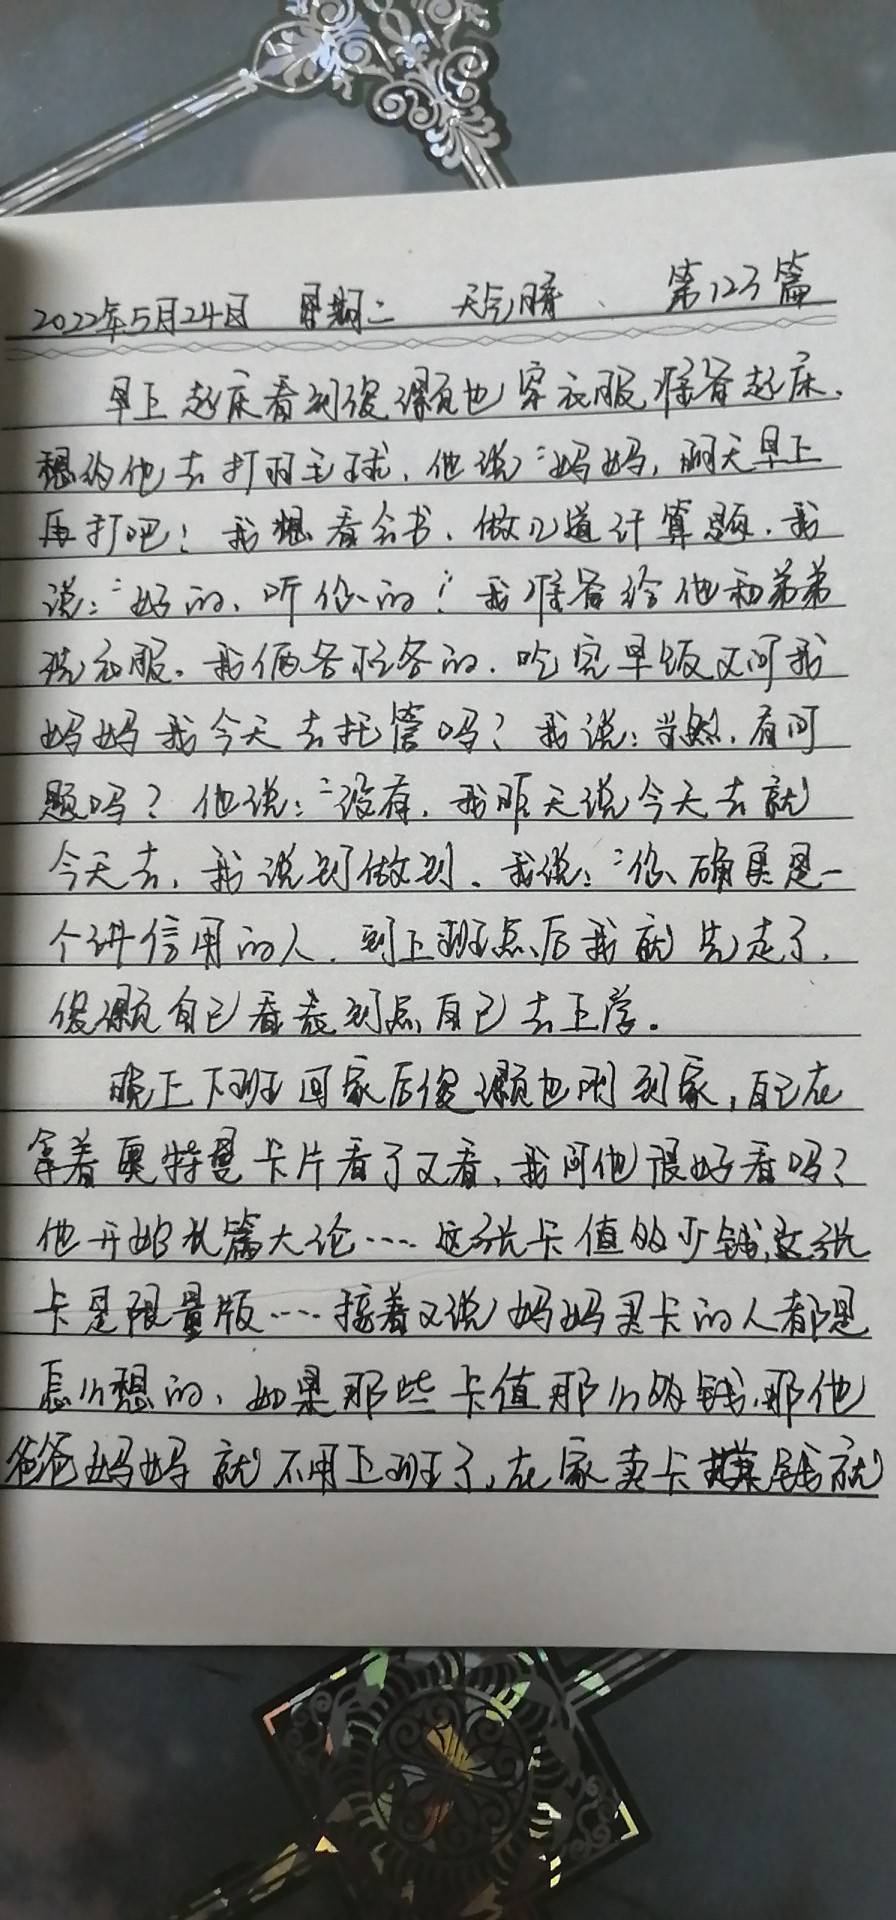 2022年5月24日 星期二 天气晴、 第123篇
早上起床看到俊灏也穿衣服准备起床、
想约他去打羽毛球、他说:“妈妈,明天早上
再打吧!我想看会书、做几道计算题、我
说:“好的、听你的!”我准备给他和弟弟
洗衣服。我俩各忙各的、吃完早饭又问我
妈妈我今天去托管吗?我说:当然、有问
题吗?他说:“没有,我昨天说今天去就
今天去,我说到做到、我说:“你确实是一
个讲信用的人、到上班点后我就先走了,
俊灏自己看表到点自己去上学。
晚上下班回家后俊灏也刚到家,自己在
拿着奥特曼卡片看了又看、我问他很好看吗?
他开始长篇大论····这张卡值多少钱,这张
卡是限量版····接着又说妈妈买卡的人都是
怎么想的、如果那些卡值那么多钱、那他
爸爸妈妈就不用上班了,在家卖卡赚钱就